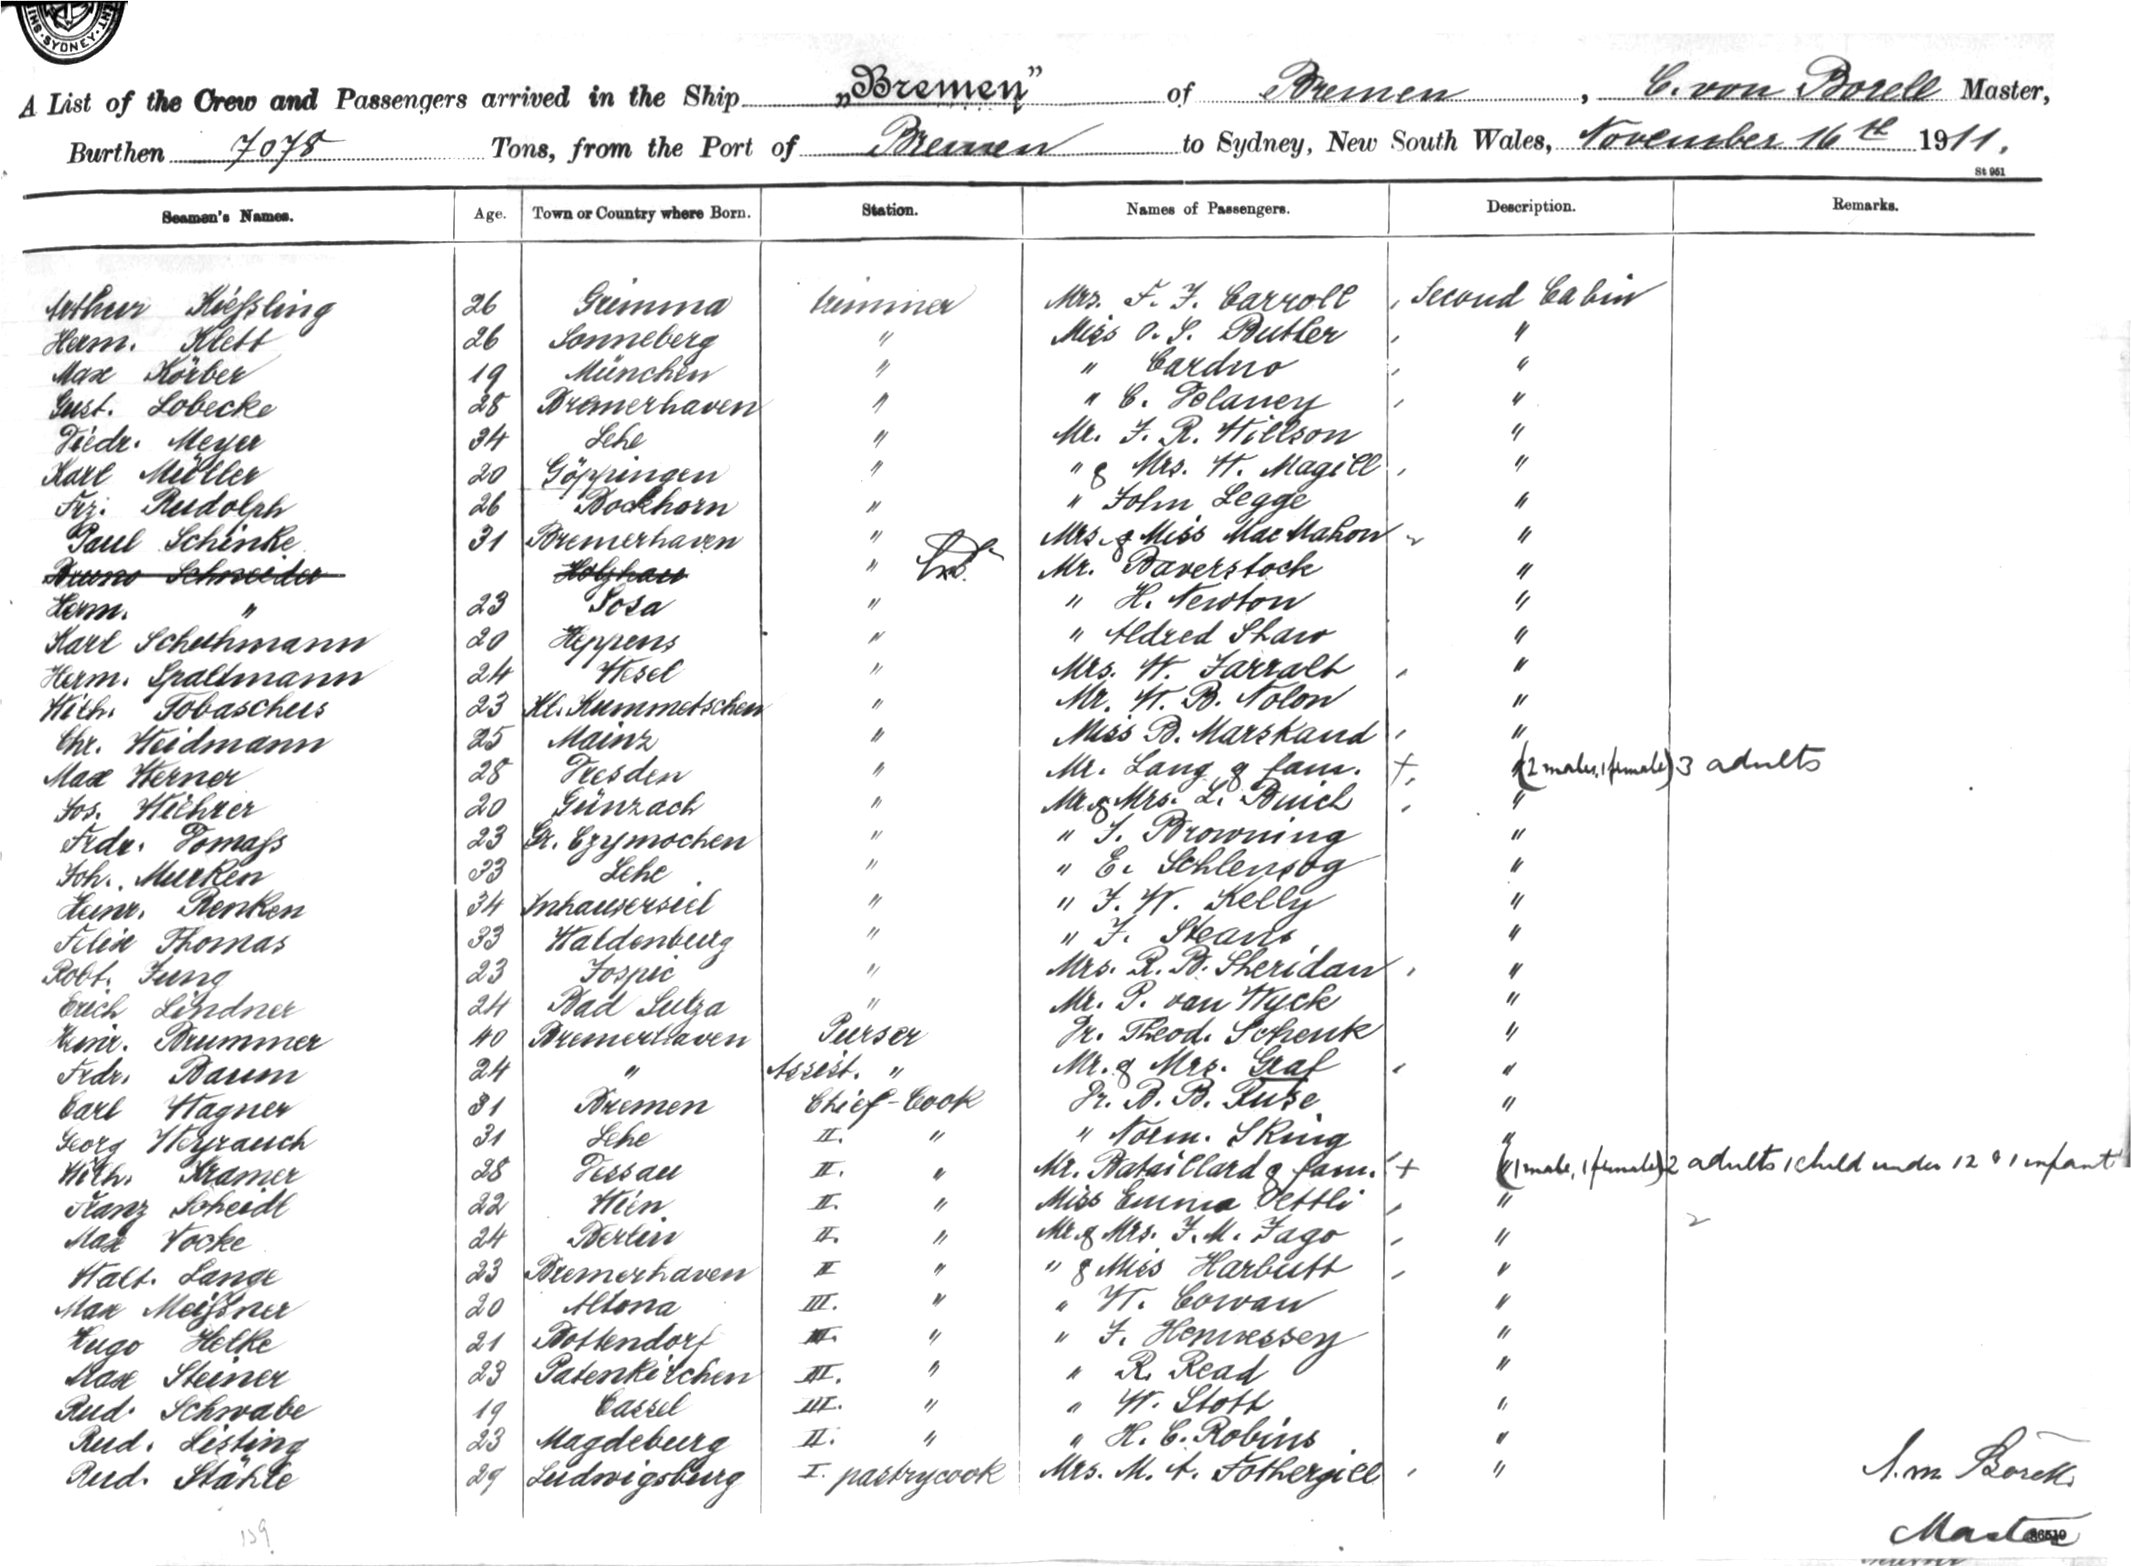 SYDNEY
A List of the Crew and Passengers arrived in the Ship „Bremen” of Bremen, C. von Borell Master,
Burthen 7078 Tons, from the Port of Bremen to Sydney, New South Wales, November 16th 1911.
St 961
Seamen's Names. Age. Town or Country where Born. Station. Names of Passengers. Description. Remarks.
Arthur Kießling 26 Grimma trimmer Mrs. F. J. Carroll , Second Cabin
Herm. Klett 26 Sonneberg " Miss O. S. Butler , "
Max Körber 19 München " " Cardno , "
Gust. Lobecke 28 Bremerhaven " " C. Delaney , "
Diedr. Meyer 34 Lehe " Mr. J. R. Willson "
Karl Müller 20 Göppingen " " & Mrs. W. Magill , "
Frz. Rudolph 26 Bockhorn " " John Legge "
Paul Schinke 31 Bremerhaven " Mrs. & Miss MacMahon "
Bruno Schneider Holzhau " Mr. Baverstock "
Herm. " 23 Sosa " " H. Newton "
Karl Schuhmann 20 Heppens " " Aldred Shaw "
Herm. Spaltmann 24 Wesel " Mrs. W. Farralt , "
Wilh. Tobaschus 23 Kl. Kummetschen " Mr. W. B. Nolon "
Chr. Weidmann 25 Mainz " Miss B. Marskand , "
Max Werner 28 Dresden " Mr. Lang & fam. + " (2 males, 1 female) 3 adults
Jos. Wichrer 20 Günzach " Mr. & Mrs. L. Buich , "
Frdr. Domaß 23 Gr. Czymochen " " J. Browning "
Joh. Murken 33 Lehe " " E. Schlensog "
Heinr. Renken 34 Inhausersiel " " J. W. Kelly "
Felix Thomas 33 Waldenburg " " J. Steans "
Robt. Jung 23 Jospic " Mrs. R. B. Sheridan , "
Erich Lindner 24 Bad Sulza " Mr. P. van Wyck "
Heinr. Brummer 40 Bremerhaven Purser Dr. Theod. Schenk "
Frdr. Baum 24 " Assist. " Mr. & Mrs. Graf , "
Carl Wagner 31 Bremen Chief-Cook Dr. B. B. Fuse "
Georg Weyrauch 31 Lehe II. " " Norm. Skring "
Wilh. Kramer 28 Dessau II. " Mr. Bataillard & fam. + " (1 male, 1 female) 2 adults 1 child under 12 & 1 infant
Franz Scheidl 22 Wien II. " Miss Emma Oettli , "
Max Vocke 24 Berlin II. " Mr. & Mrs. J. M. Jago , "
Walt. Lange 23 Bremerhaven II " " & Miss Harbutt , "
Max Meißner 20 Altona III. " " W. Cowan "
Hugo Helke 21 Bottendorf III. " " J. Hennessey "
Max Steiner 23 Patenkirchen III. " " R. Read "
Rud. Schwabe 19 Cassel III. " " W. Stott "
Rud. Listing 23 Magdeburg II. " " H. C. Robins "
Rud. Stähle 29 Ludwigsburg I. pastrycook Mrs. M. A. Fothergill , "
Borell
Master
139